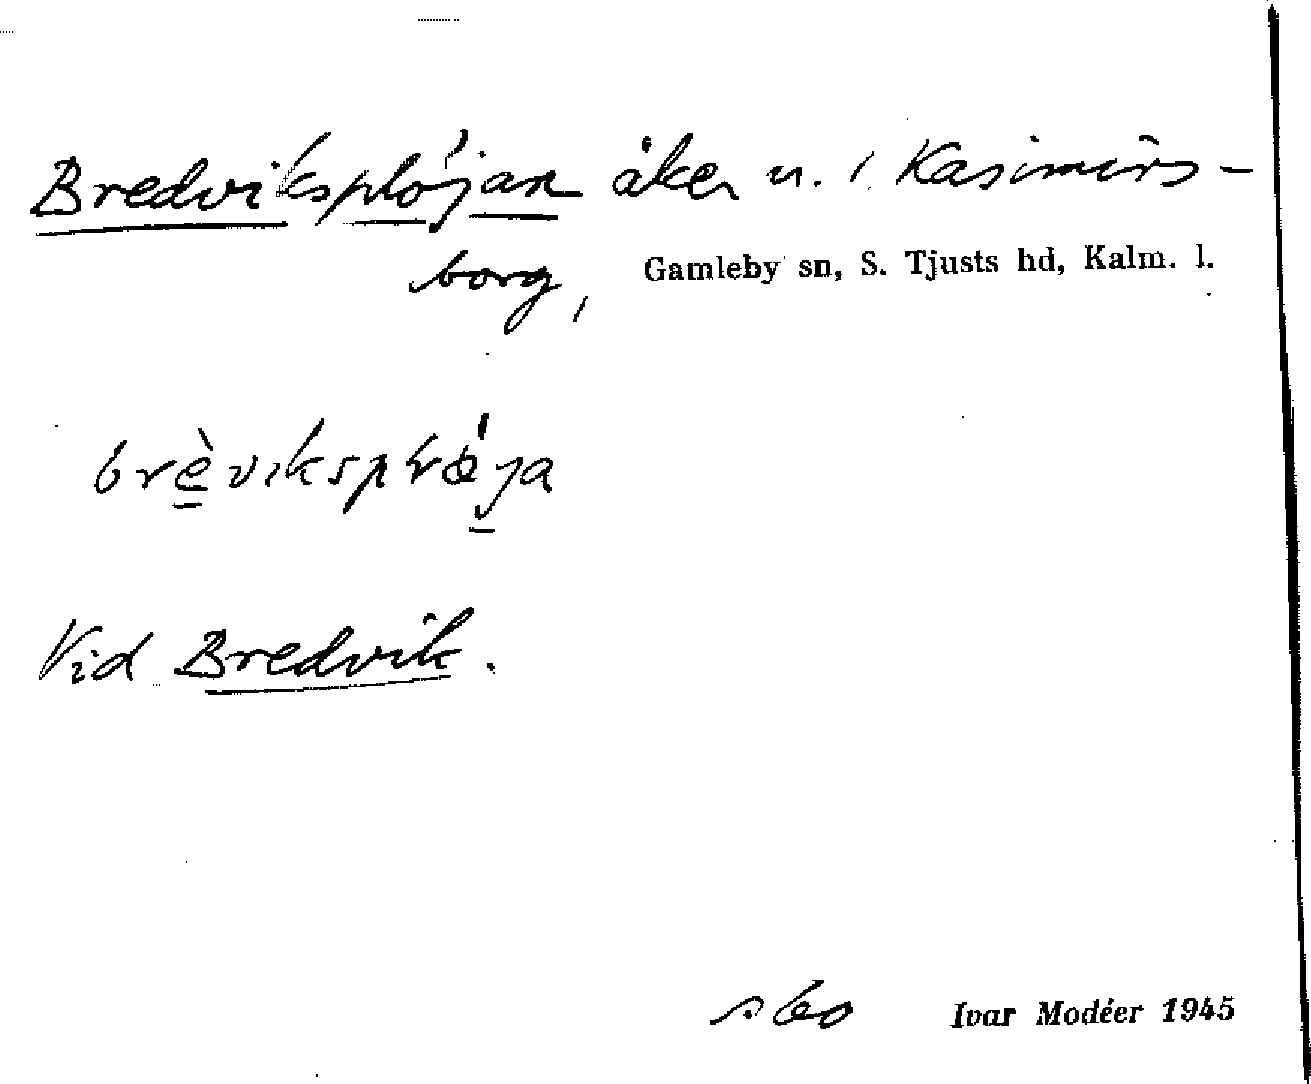 Bredviksplöjan åker u. Kasimirs-
borg, Gamleby sn, S. Tjusts hd, Kalm. l.
Vid Bredvik.
s. 60 Ivar Modéer 1945